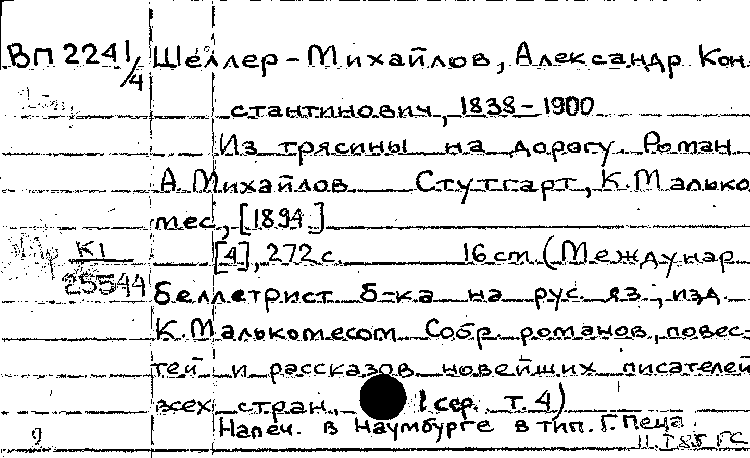 ВП 2241/4 Шеллер-Михайлов, Александр Кон-
стантинович, 1838-1900
Из трясины на дорогу. Роман
А. Михайлов. Стутгарт, К. Малько-
мес, [1894]
[4], 272 с. 16 cm (Междунар
К1
25544
беллетрист б-ка на рус. яз., изд.
К. Малькомесом. Собр. романов, повес-
тей и рассказов новейших писателей
всех стран. 1 сер. т. 4)
Напеч. в Наумбурге в тип. Г. Пеца.